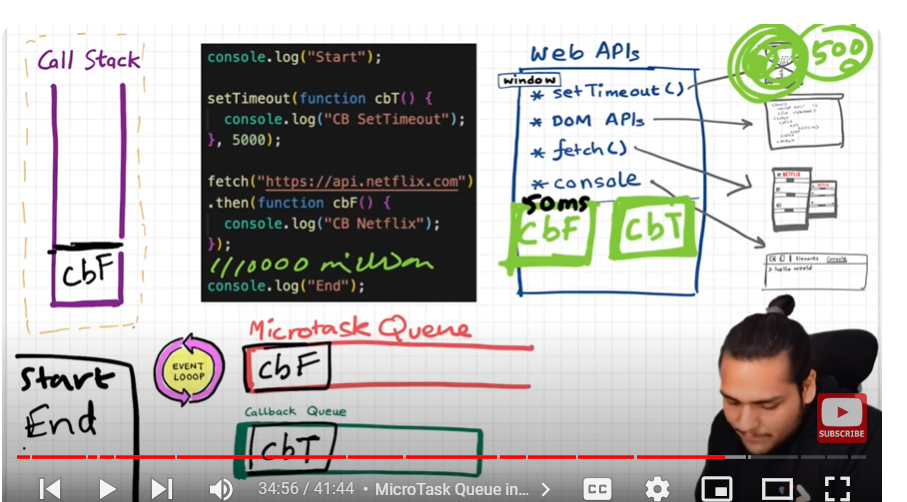 Call Stack
cbF
console.log("Start");
setTimeout(function cbT() {
console.log("CB SetTimeout");
}, 5000);
fetch("https://api.netflix.com")
.then(function cbF() {
console.log("CB Netflix");
});
10000 million
console.log("End");
Web APIs
window
* setTimeout()
* DOM APIs
* fetch()
* console
50ms
CbF
CbT
500
NETFLIX
Elements Console
> hello world
Microtask Queue
cbF
EVENT
LOOOP
Callback Queue
cbT
Start
End
SUBSCRIBE
34:56 / 41:44 • MicroTask Queue in...
CC